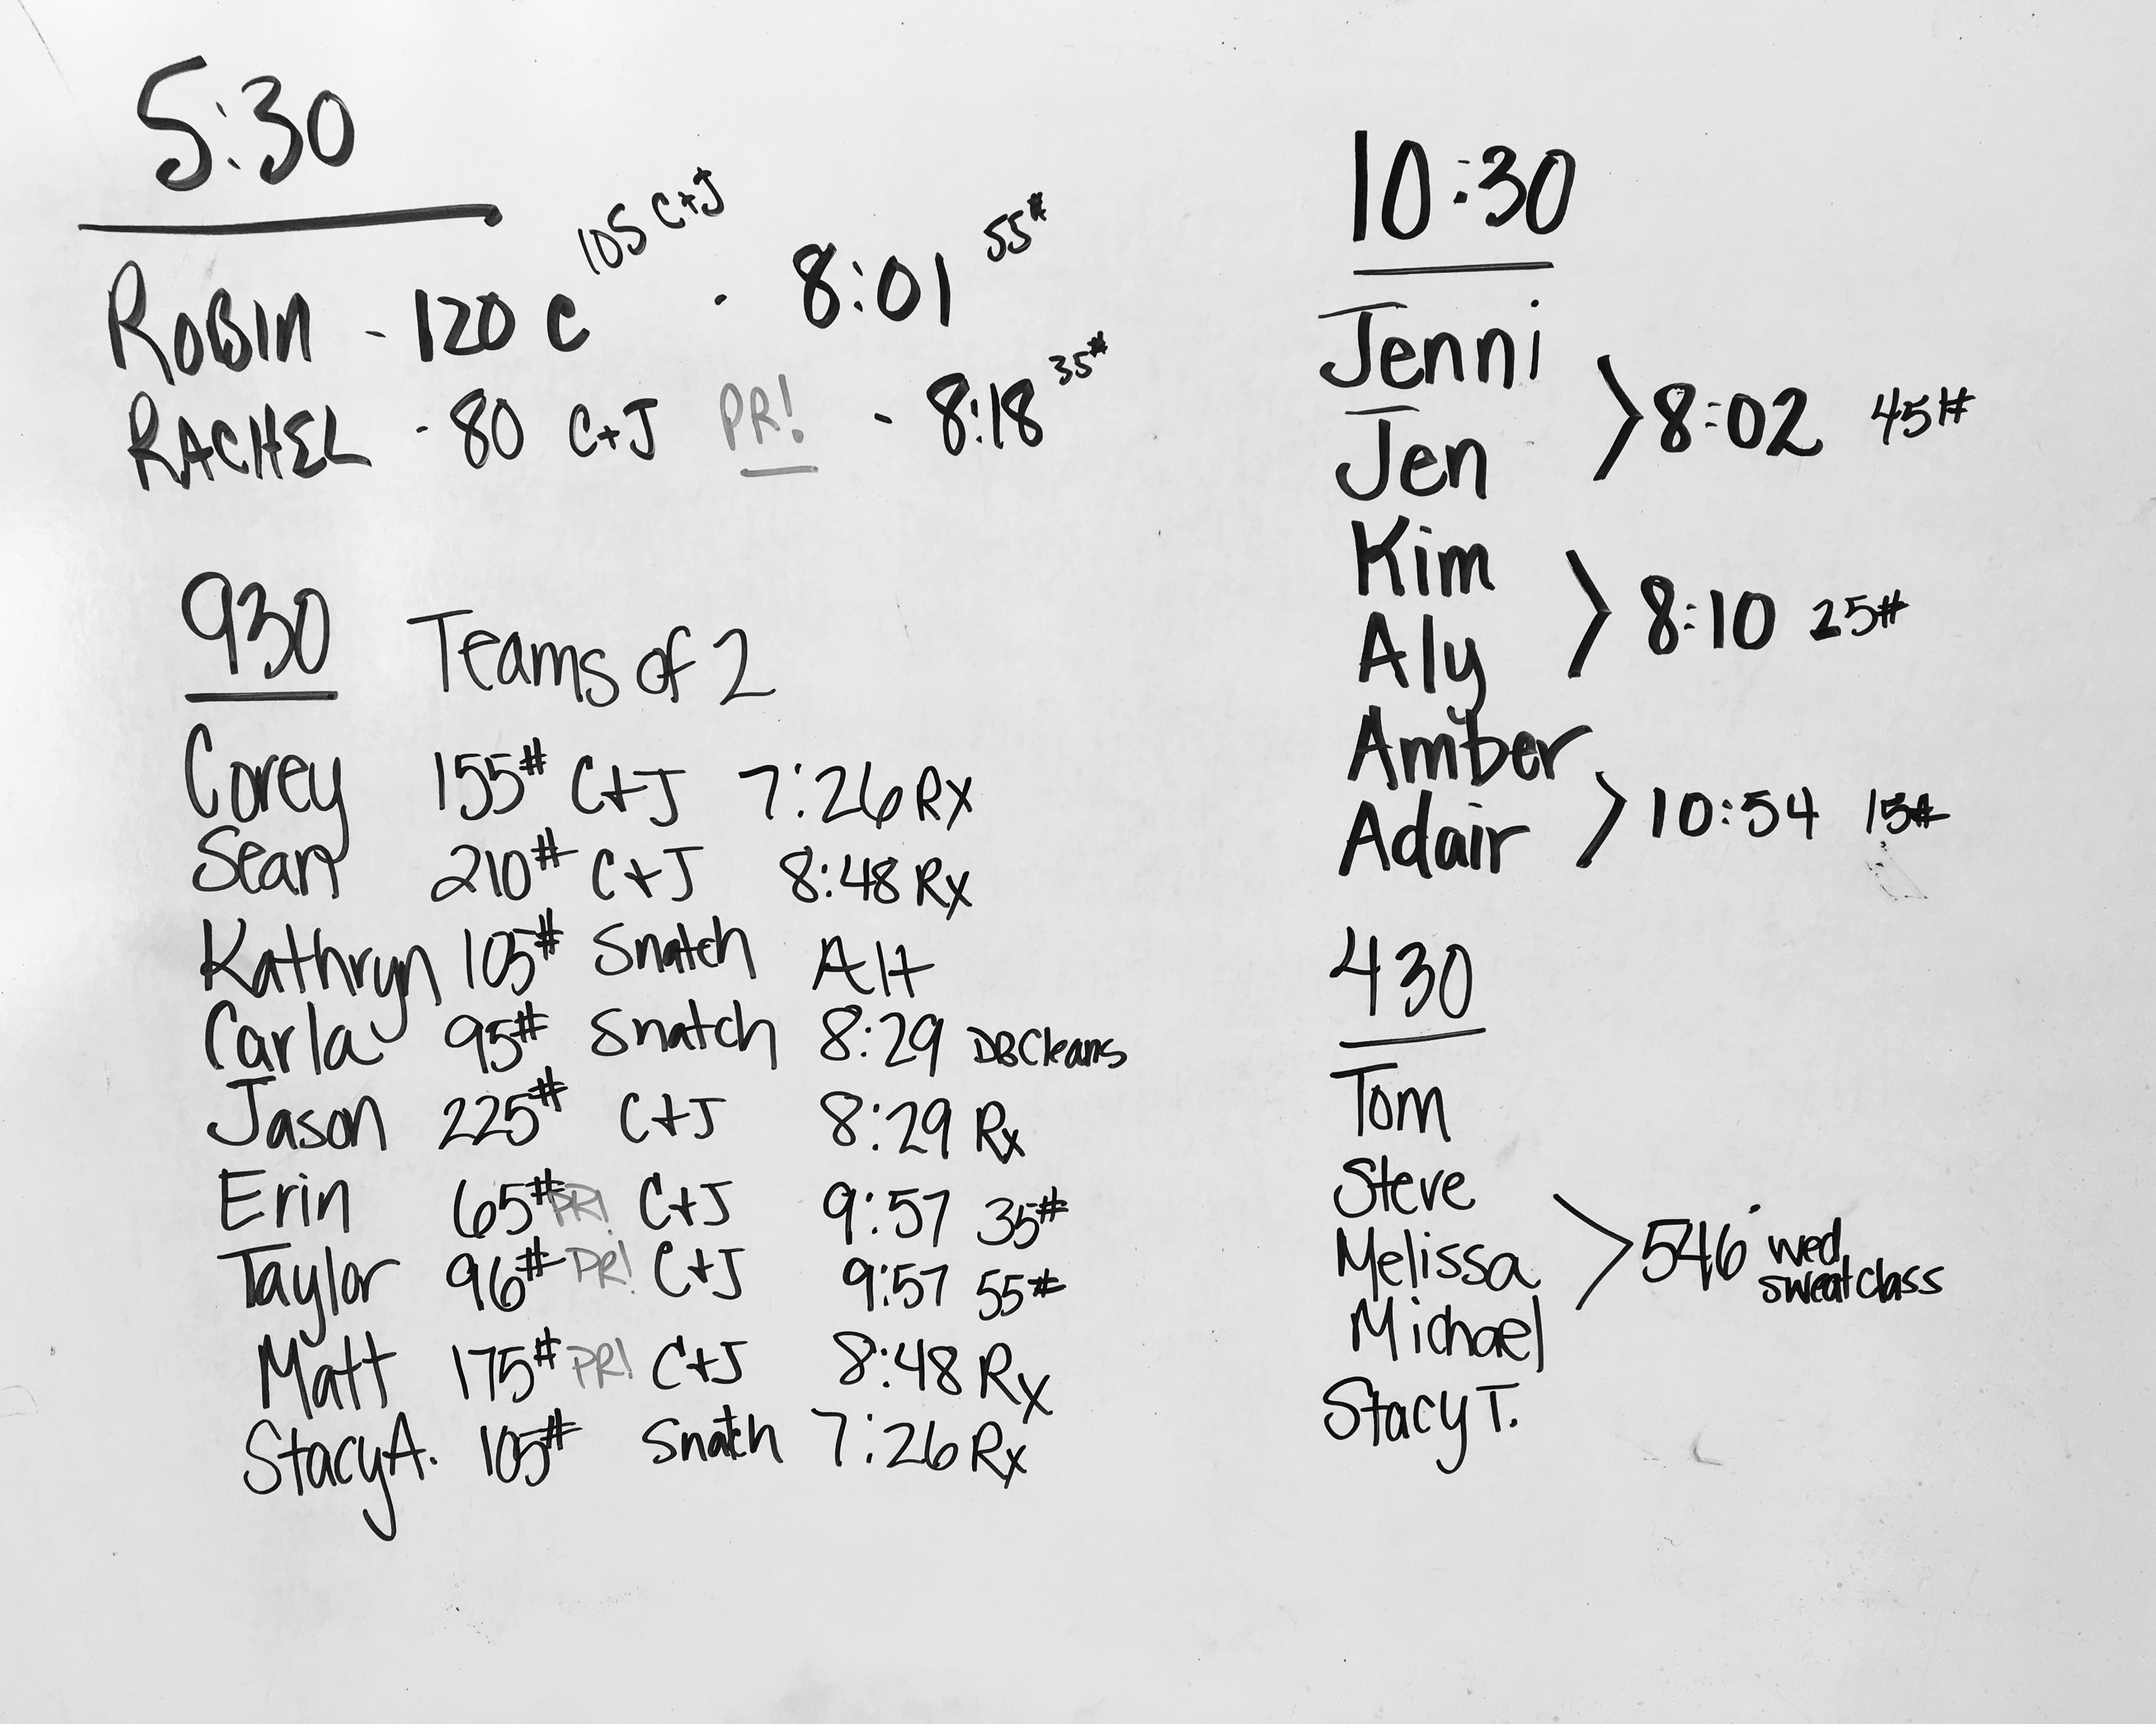 5:30
ROBIN - 120 C 105 C+J - 8:01 55#
RACHEL - 80 C+J PR! - 8:18 35#
930 Teams of 2
Corey 155# C+J 7:26 Rx
Sean 210# C+J 8:48 Rx
Kathryn 105# Snatch Alt
Carla 95# Snatch 8:29 DB Cleans
Jason 225# C+J 8:29 Rx
Erin 65# PR! C+J 9:57 35#
Taylor 96# PR! C+J 9:57 55#
Matt 175# PR! C+J 8:48 Rx
Stacy A. 105# Snatch 7:26 Rx
10:30
Jenni
Jen
> 8:02 45#
Kim
Aly
> 8:10 25#
Amber
Adair
> 10:54 15#
430
Tom
Steve
Melissa
Michael
Stacy T.
> 546 wed
sweat class